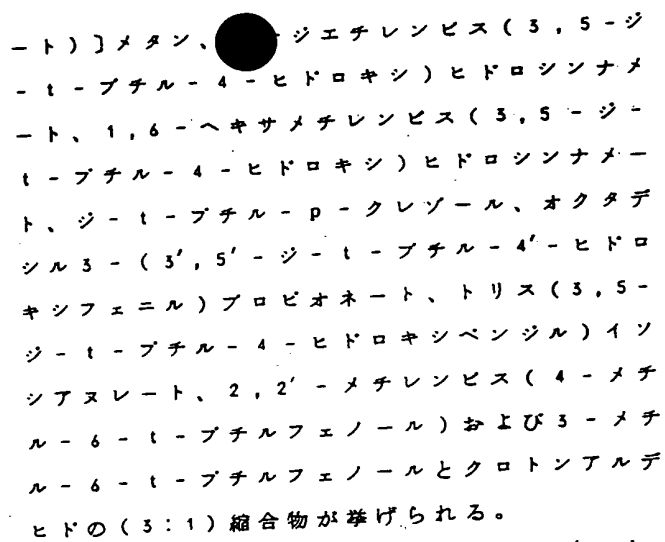 ート)]メタン、-ジエチレンビス(3,5-ジ
-t-ブチル-4-ヒドロキシ)ヒドロシンナメ
ート、1,6-ヘキサメチレンビス(3,5-ジ-
t-ブチル-4-ヒドロキシ)ヒドロシンナメー
ト、ジ-t-ブチル-p-クレゾール、オクタデ
シル3-(3′,5′-ジ-t-ブチル-4′-ヒドロ
キシフェニル)プロピオネート、トリス(3,5-
ジ-t-ブチル-4-ヒドロキシベンジル)イソ
シアヌレート、2,2′-メチレンビス(4-メチ
ル-6-t-ブチルフェノール)および3-メチ
ル-6-t-ブチルフェノールとクロトンアルデ
ヒドの(3:1)縮合物が挙げられる。